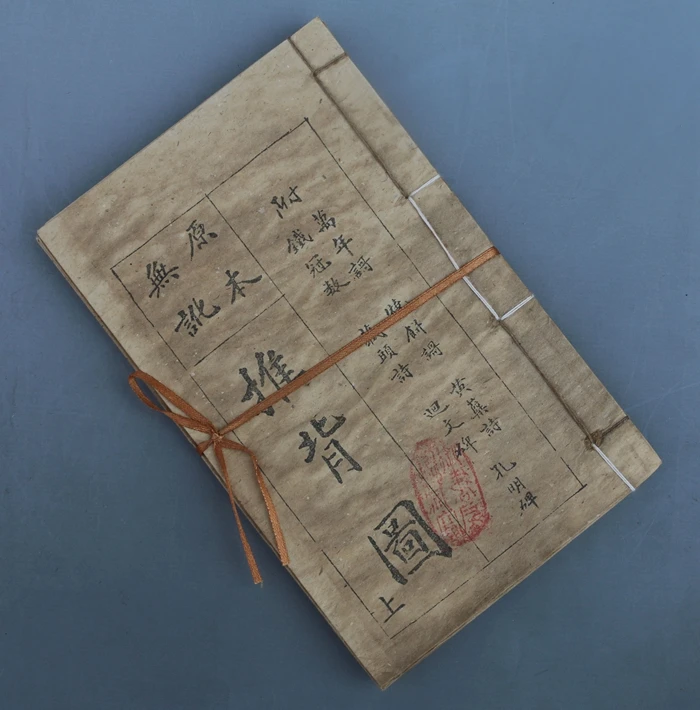 附
萬年謌
鐵冠数
燒餅謌
藏頭詩
黄蘗詩
迴文碑
孔明碑
原本
無訛
推背圖
上